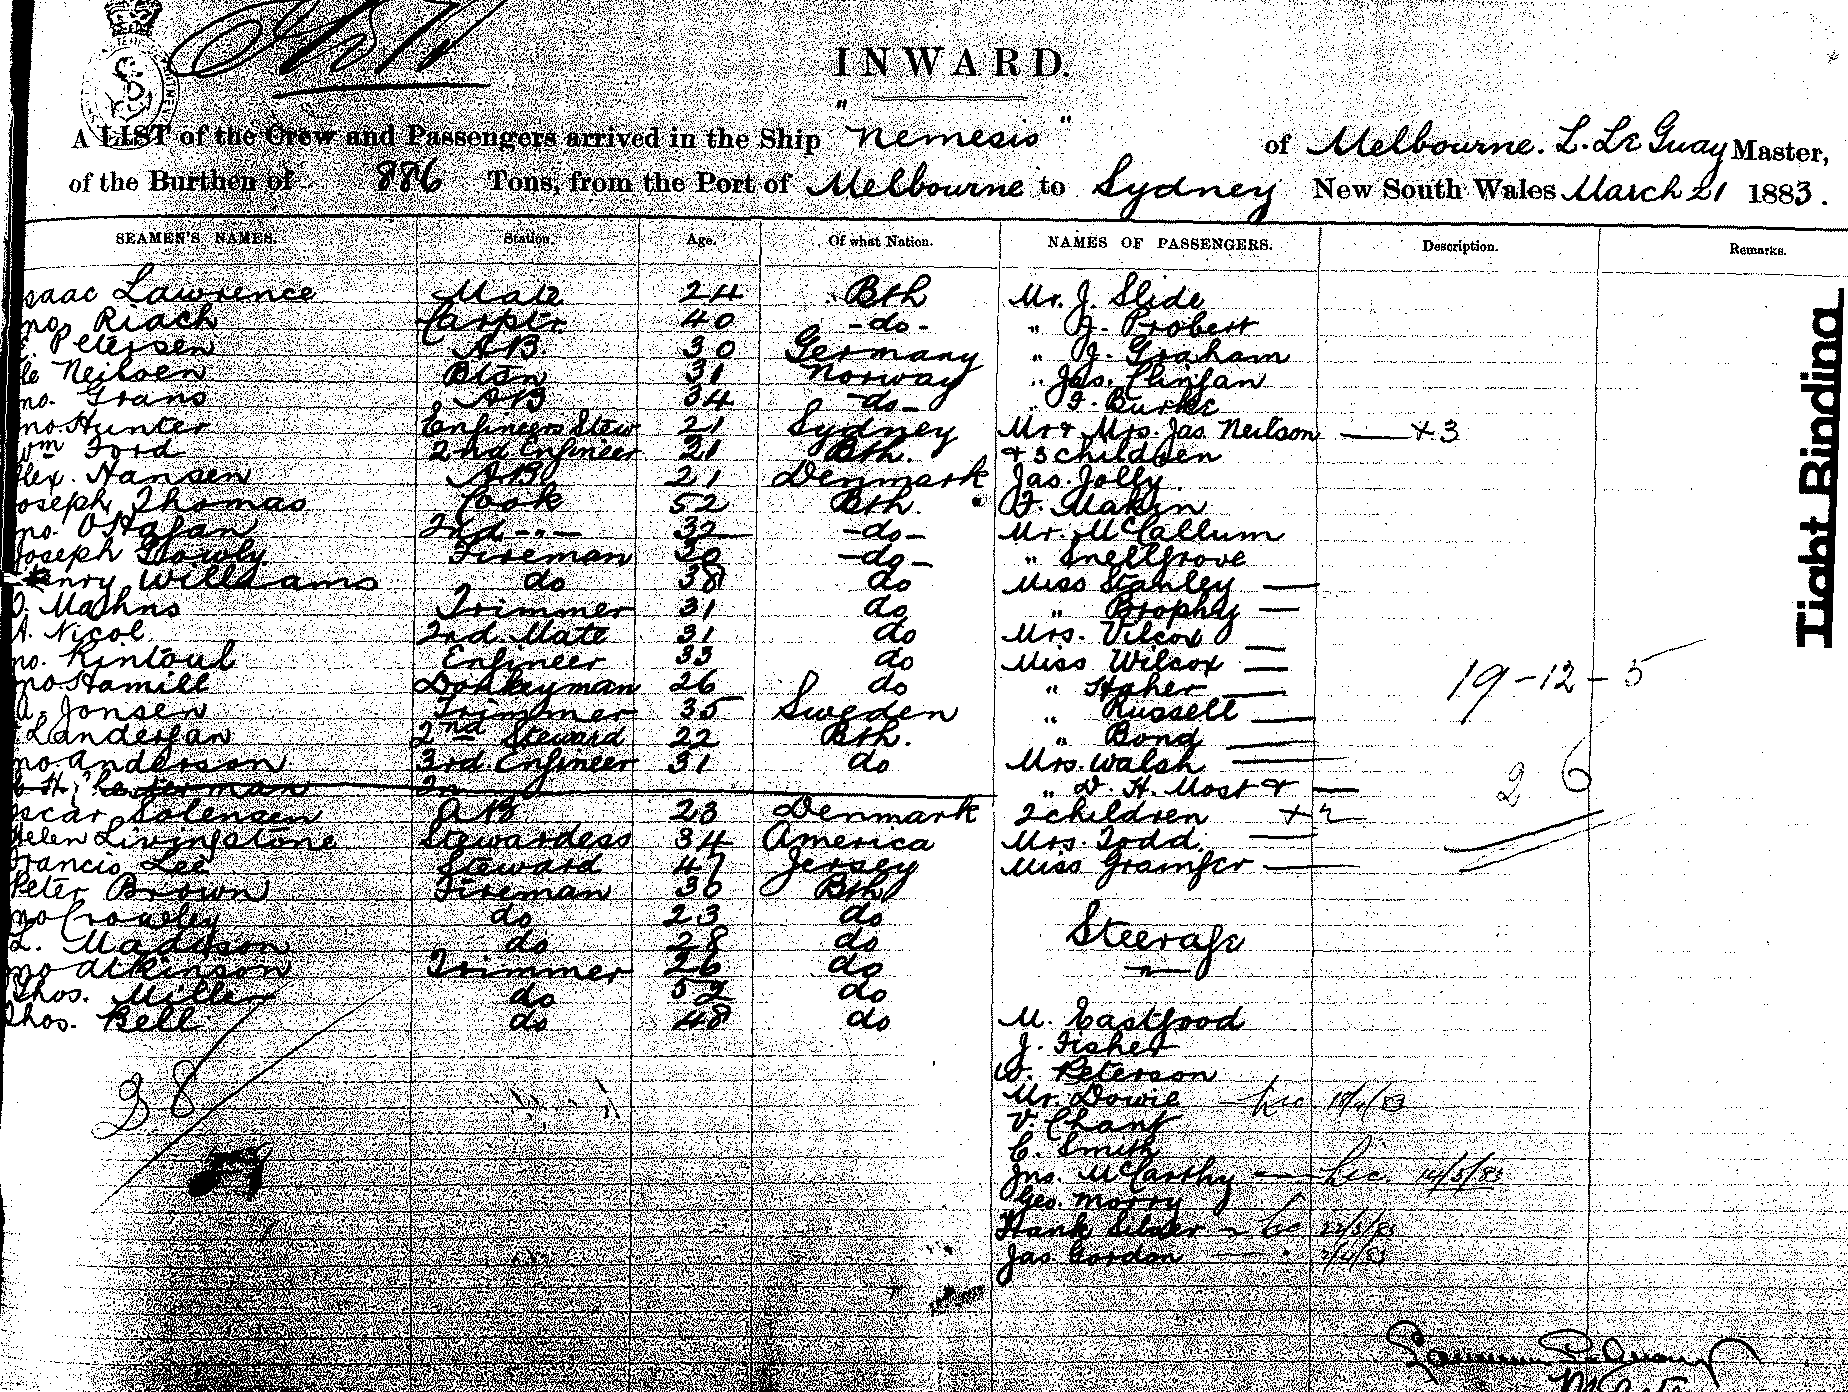 INWARD.
A LIST of the Crew and Passengers arrived in the Ship "Nemesis" of Melbourne. L. Le Guay Master,
of the Burthen of 886 Tons, from the Port of Melbourne to Sydney New South Wales March 21 1883.
SEAMEN'S NAMES. Station. Age. Of what Nation. NAMES OF PASSENGERS. Description. Remarks.
saac Lawrence Mate 24 Bth Mr. J. Slide
no. Riach Carptr 40 -do- " J. Probert
Petersen AB. 30 Germany " J. Graham
le Neilsen 31 Norway " Jas.
no. Grans AB 34 -do- Burke
no Hunter Engineers Stew 21 Sydney Mr & Mrs. Jas. Neilson — + 3
wm Ford 2nd Engineer 21 Bth. + 3 children
lex. Hansen AB 21 Denmark Jas. Jolly.
oseph Thomas Cook 52 Bth. Makin
no. O'Hagan 2nd -"- 32 -do- Mr. McCallum
oseph Fireman 30 -do- " Snellgrove
enry Williams do 38 do Miss Stanley —
Trimmer 31 do " Brophy —
A. Nicol 2nd Mate 31 do Mrs. Vilcox —
no. Rintoul Engineer 33 do Miss Wilcox —
no Hamill Donkeyman 26 do " —
a. Jonsen Trimmer 35 Sweden " Russell —
2nd Steward 22 Bth. " Bond —
no anderson 3rd Engineer 31 do Mrs. Walsh —
" D. H. Most & —
scar Solensen AB 23 Denmark 2 children + 2
Helen Livingstone Stewardess 34 America Mrs. Todd. —
Francis Lee Steward 47 Jersey Miss Grainger —
Peter Brown Fireman 30 Bth
no Crowley do 23 do
L. Maddison do 28 do Steerage
no atkinson Trimmer 26 do
Thos. Miller do 52 do
Thos. Bell do 48 do M. Eastgood
J. Fisher
Peterson
Mr. Dowie
V. Chant
C. Smith
Jno. McCarthy
Geo. Morry
Frank
Jas. Gordon
19-12-5
26
28
Tight Binding